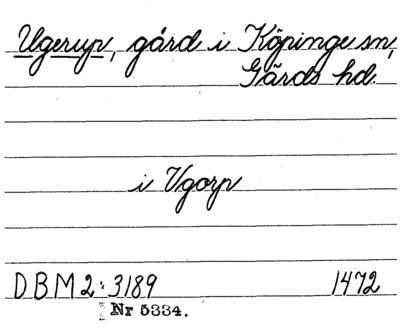 Ugerup, gård i Köpinge sn,
Gärds hd.
i Vgorp
DBM 2: 3189 1472
Nr 5334.